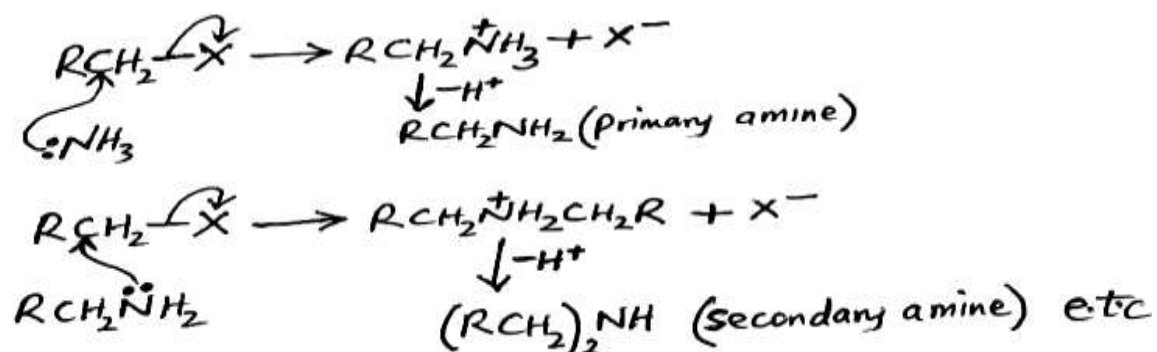 RCH₂—X → RCH₂N⁺H₃ + X⁻
↓ -H⁺
:NH₃ RCH₂NH₂ (primary amine)
RCH₂—X → RCH₂N⁺H₂CH₂R + X⁻
↓ -H⁺
RCH₂N̈H₂ (RCH₂)₂NH (secondary amine) e.t.c